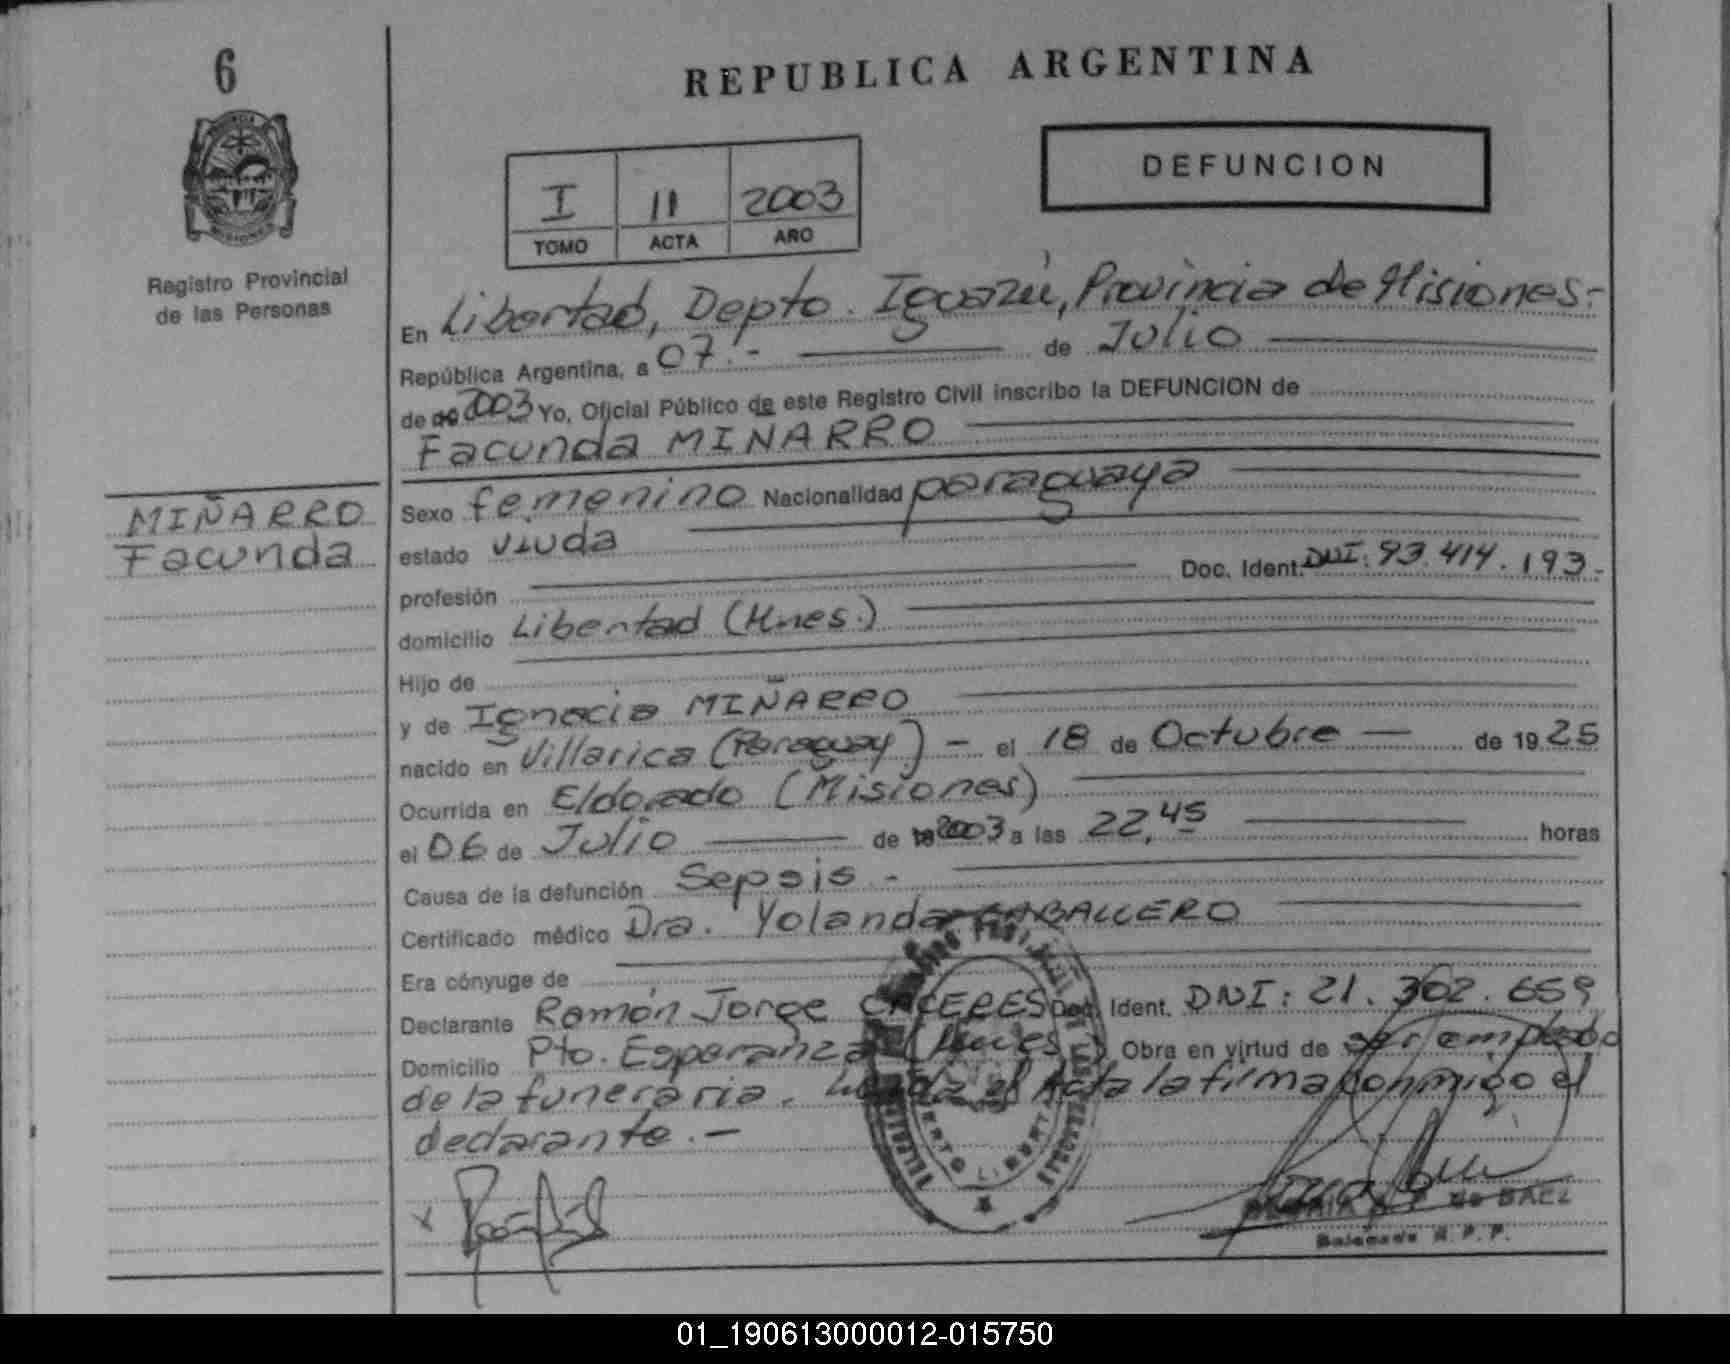 6
REPUBLICA ARGENTINA
DEFUNCION
I 11 2003
TOMO ACTA AÑO
Registro Provincial
de las Personas
En Libertad, Depto. Iguazú, Provincia de Misiones.-
República Argentina, a 07.- de Julio
de 2003 Yo, Oficial Público de este Registro Civil inscribo la DEFUNCION de
Facunda MINARRO
MIÑARRO
Facunda
Sexo femenino Nacionalidad paraguaya
estado viuda
profesión Doc. Ident. DNI: 93.414.193.-
domicilio Libertad (Mnes.)
Hijo de
y de Ignacia MIÑARRO
nacido en Villarica (Paraguay) - el 18 de Octubre — de 1925
Ocurrida en Eldorado (Misiones)
el 06 de Julio de 2003 a las 22,45 horas
Causa de la defunción Sepsis.-
Certificado médico Dra. Yolanda CABALLERO
Era cónyuge de
Declarante Ramón Jorge CACERES Doc. Ident. DNI: 21.302.659
Domicilio Pto. Esperanza (Mnes.) Obra en virtud de ser empleado
de la funeraria. Leída el Acta la firma conmigo el
declarante.-
x
de BAEZ
R. P. P.
01_190613000012-015750